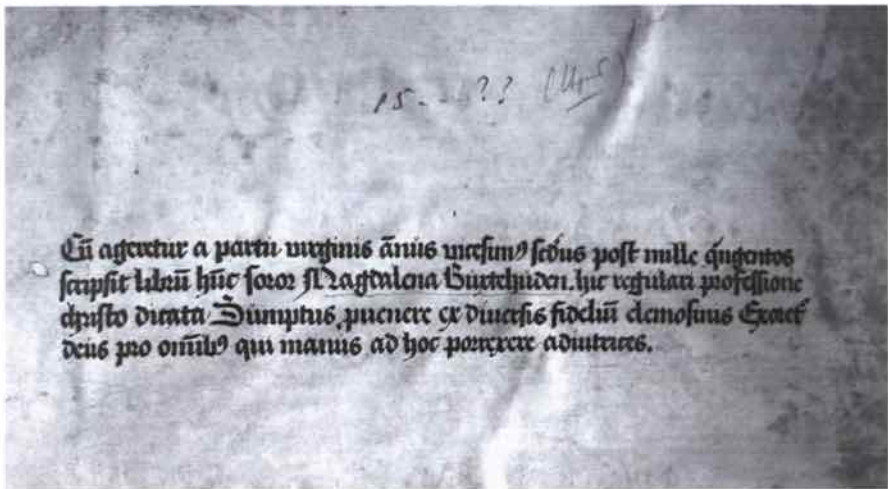 15 - - ??
Cū ageretur a partu virginis ānus vicesimꝰ scd̄us post mille q̄ngentos
scripsit librū hūc soror Magdalena Buxtehuden. hic regulari professione
christo dicata Sumptus, puenere ex diuersis fidelium elemosinis
deus pro omībꝰ qui manus ad hoc porrexere adiutrices.